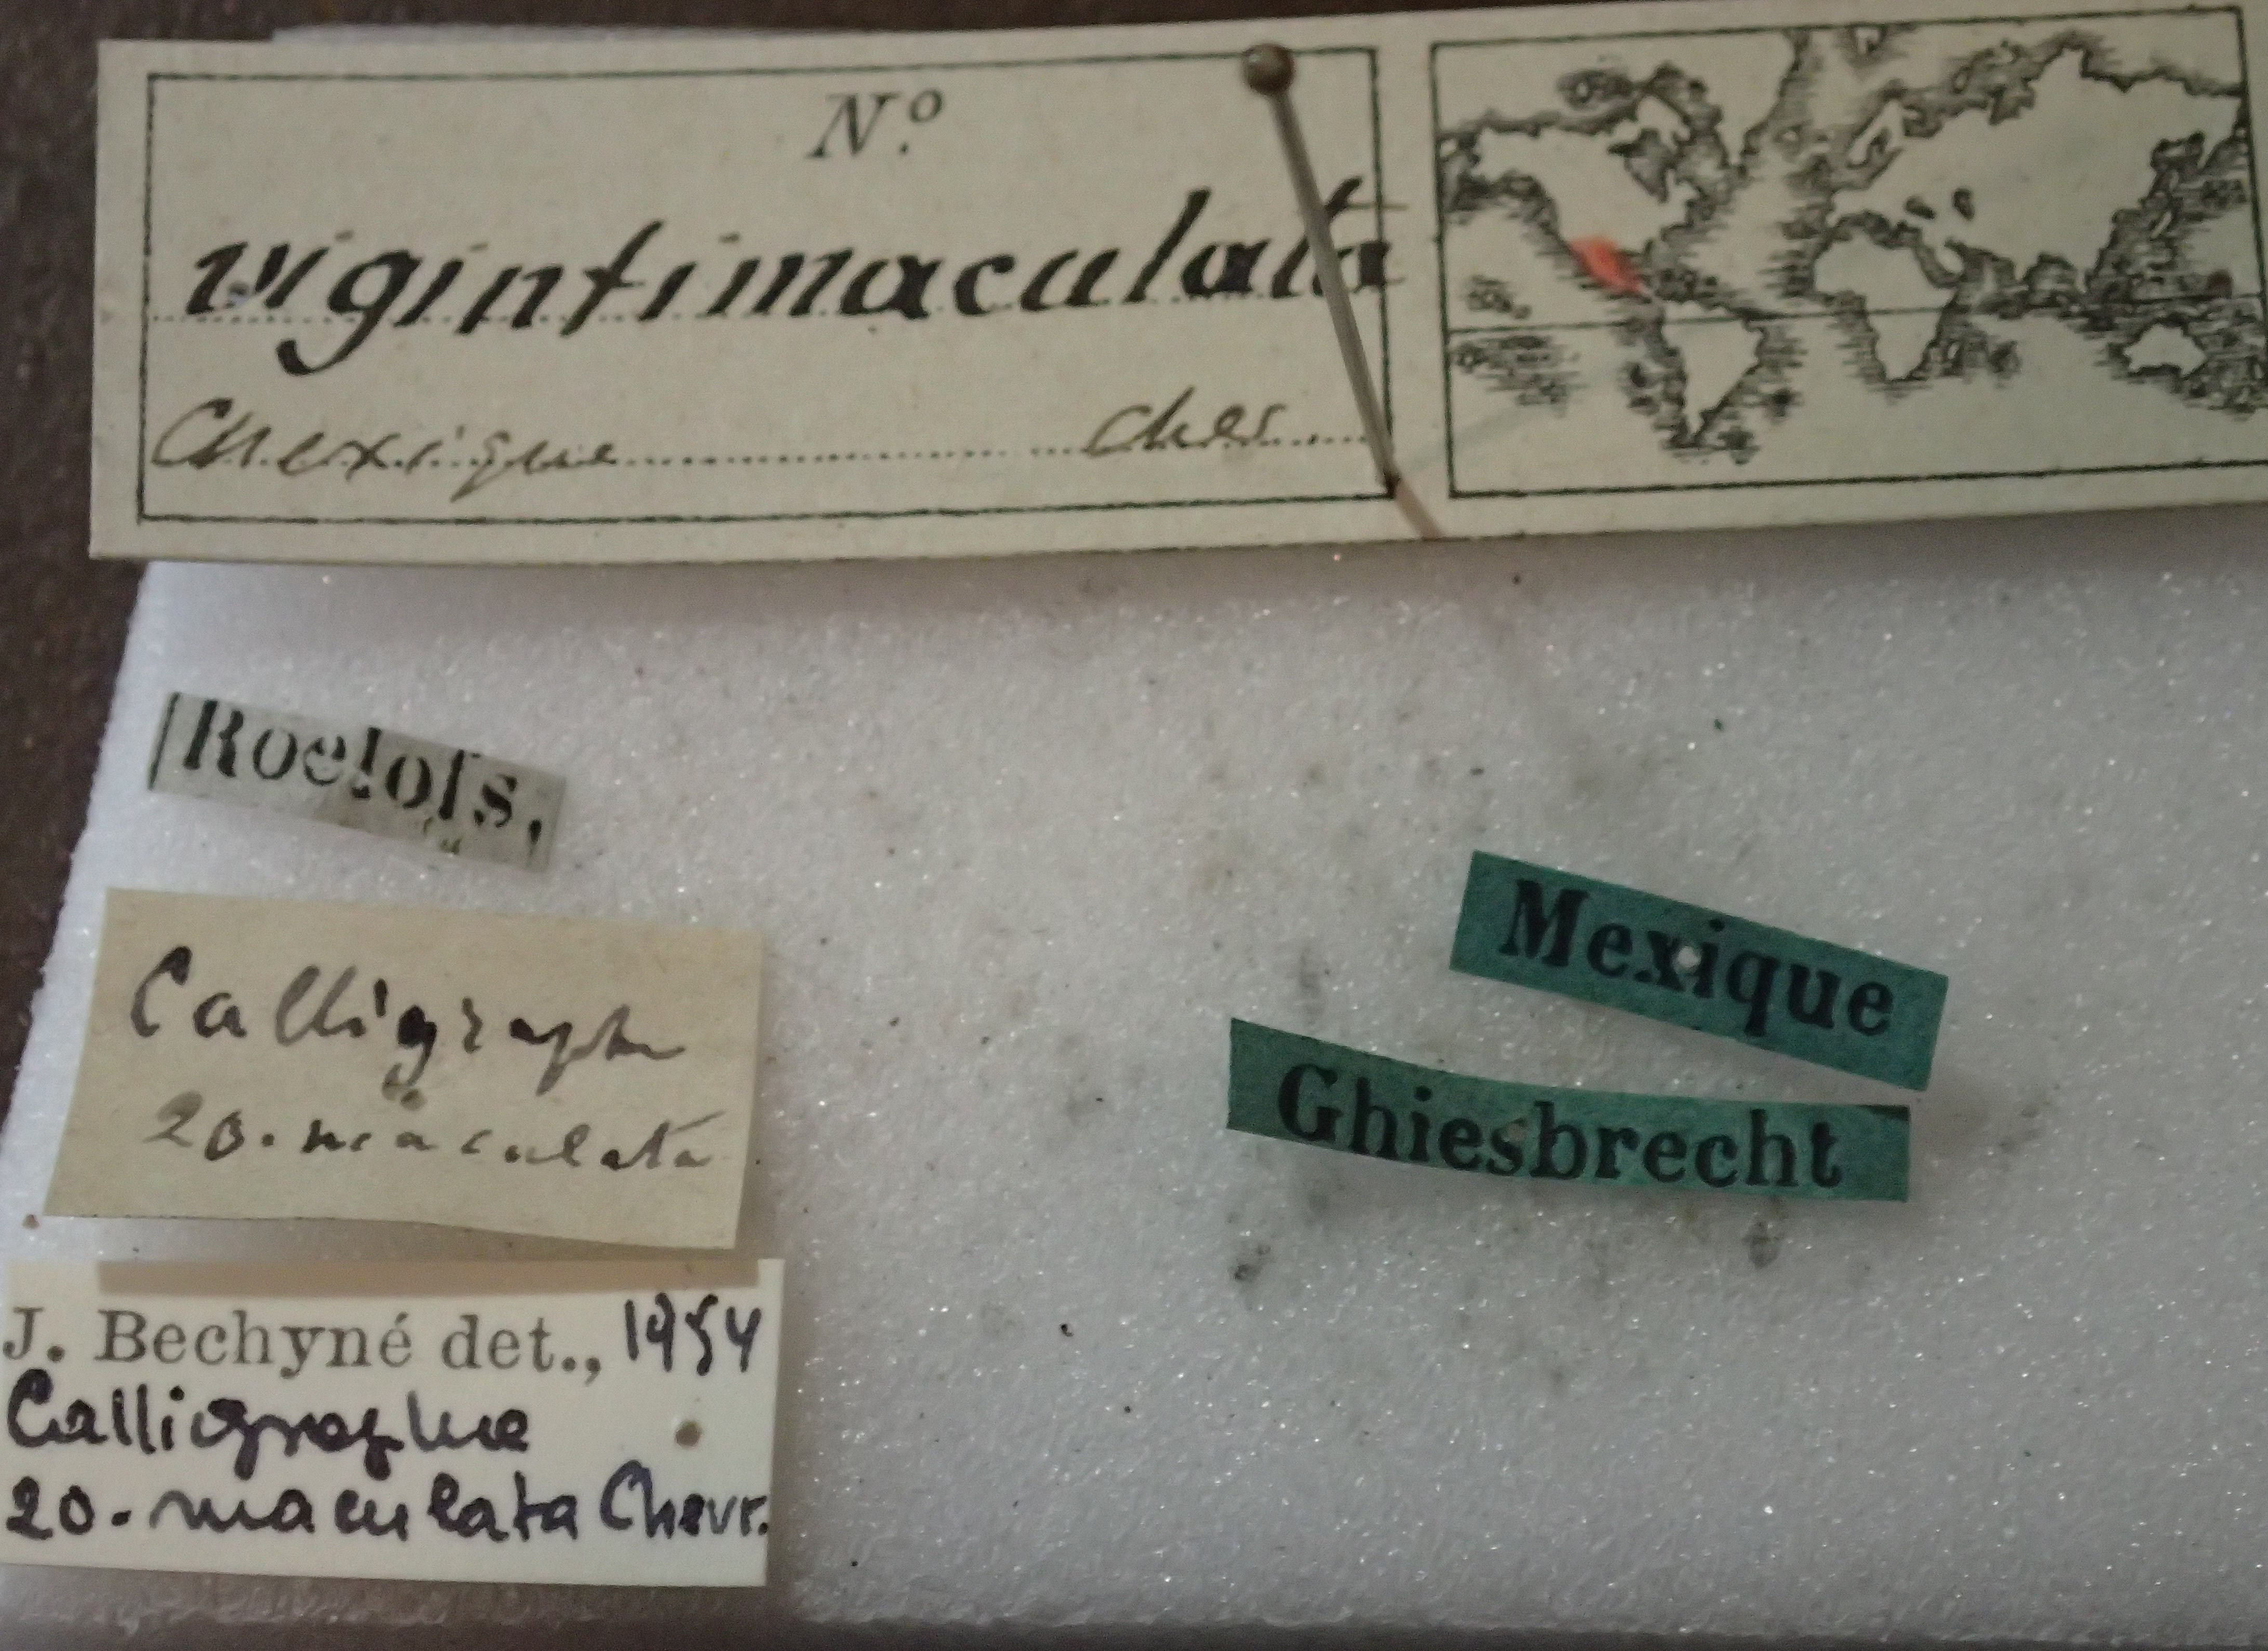 N.º
vigintimaculata
Mexique Chev
Roelofs.
Mexique
Ghiesbrecht
Calligrapha
20.maculata
J. Bechyné det., 1954
Calligrapha
20.maculata Chevr.